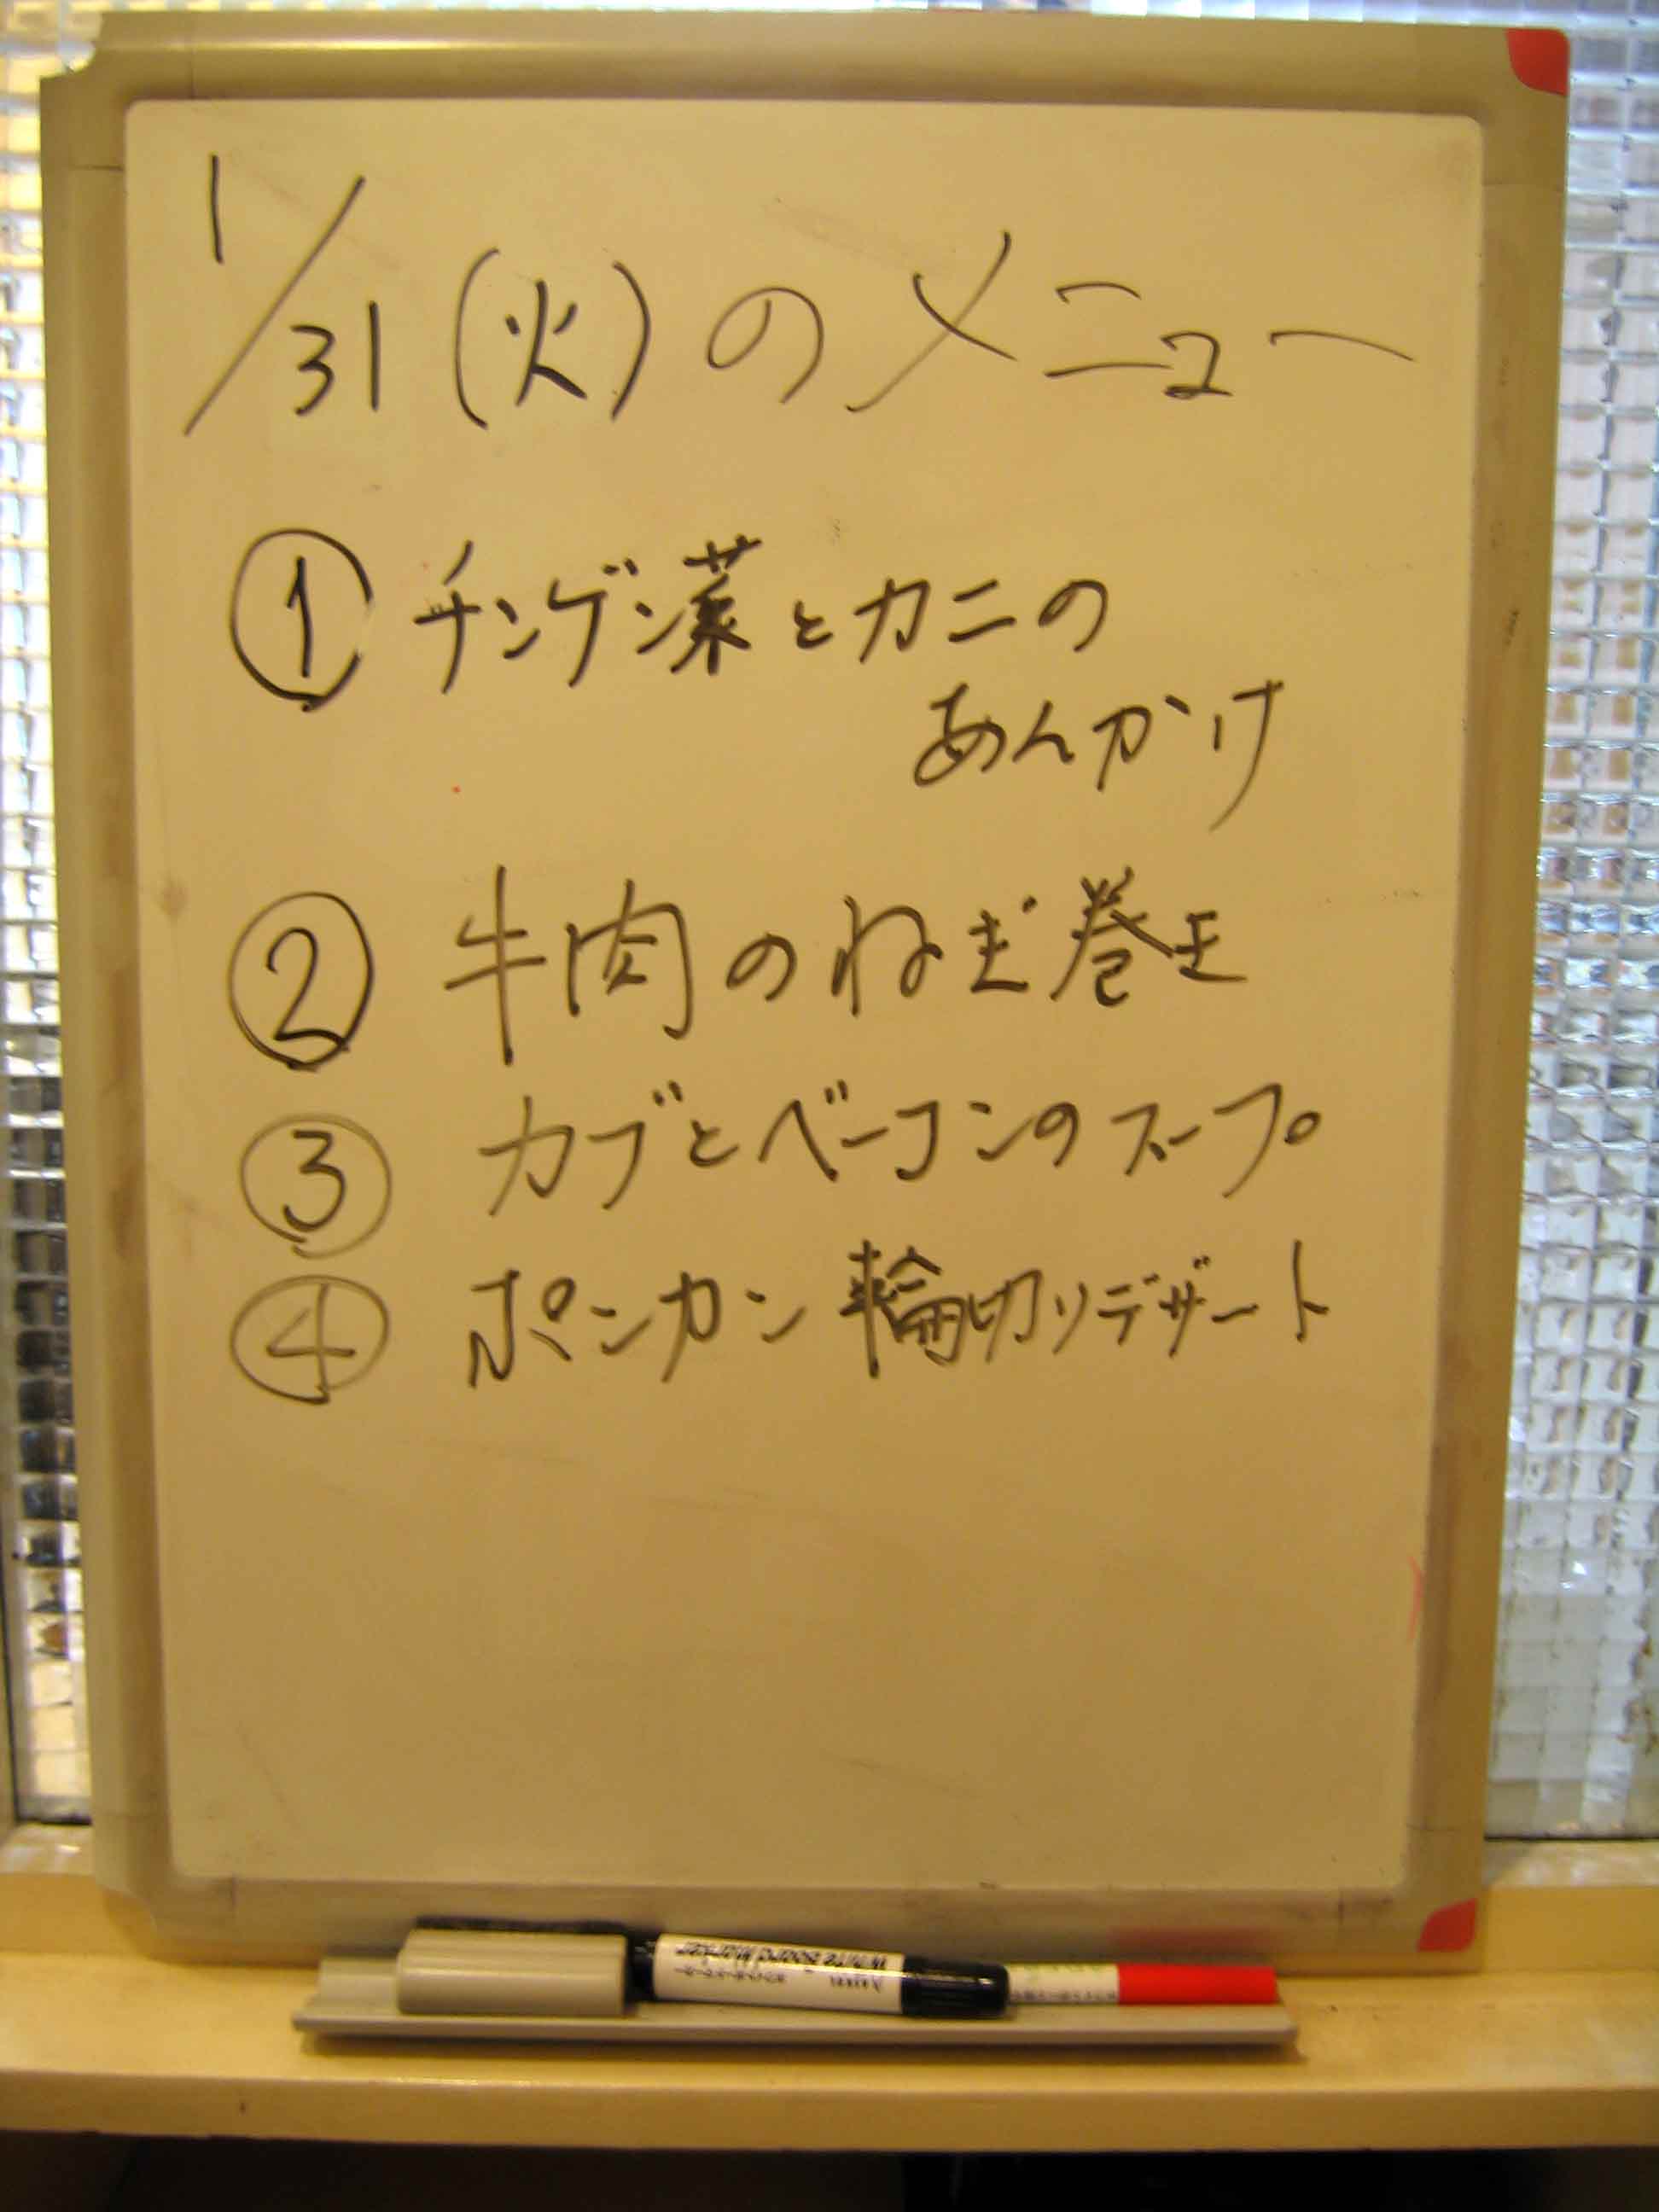 1/31(火)のメニュー
① チンゲン菜とカニの
あんかけ
② 牛肉のねぎ巻き
③ カブとベーコンのスープ
④ ポンカン輪切りデザート
White Board Marker